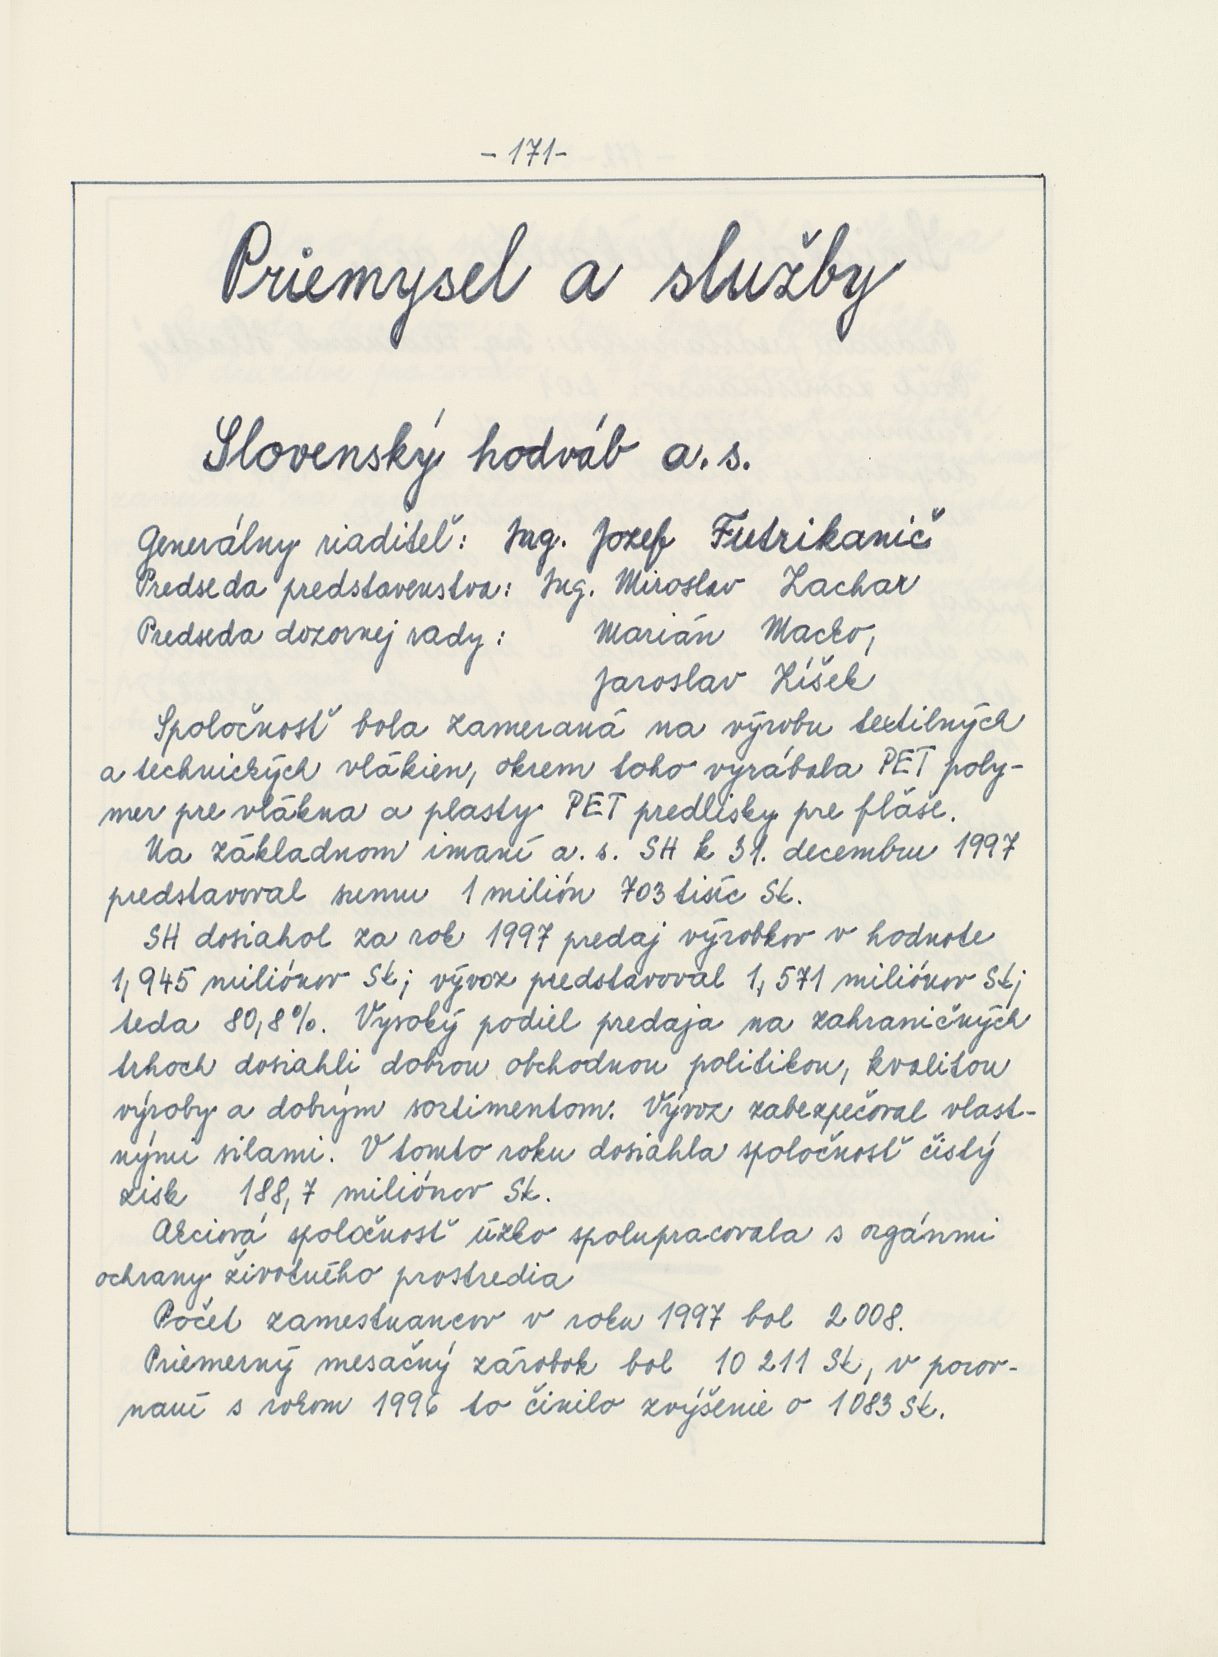 - 171 -
Priemysel a služby
Slovenský hodváb a. s.
Generálny riaditeľ: Ing. Jozef Futrikanič
Predseda predstavenstva: Ing. Miroslav Zachar
Predseda dozornej rady: Marián Macko,
Jaroslav Líšek
Spoločnosť bola zameraná na výrobu textilných
a technických vlákien, okrem toho vyrábala PET poly-
mer pre vlákna a plasty PET predlisky pre fľaše.
Na základnom imaní a. s. SH k 31. decembru 1997
predstavoval sumu 1 milión 703 tisíc Sk.
SH dosiahol za rok 1997 predaj výrobkov v hodnote
1,945 miliónov Sk; vývoz predstavoval 1,571 miliónov Sk;
teda 80,8%. Vysoký podiel predaja na zahraničných
trhoch dosiahli dobrou obchodnou politikou, kvalitou
výroby a dobrým sortimentom. Vývoz zabezpečoval vlast-
nými silami. V tomto roku dosiahla spoločnosť čistý
zisk 188,7 miliónov Sk.
Akciová spoločnosť úzko spolupracovala s orgánmi
ochrany životného prostredia
Počet zamestnancov v roku 1997 bol 2 008.
Priemerný mesačný zárobok bol 10 211 Sk, v porov-
naní s rokom 1996 to činilo zvýšenie o 1083 Sk.